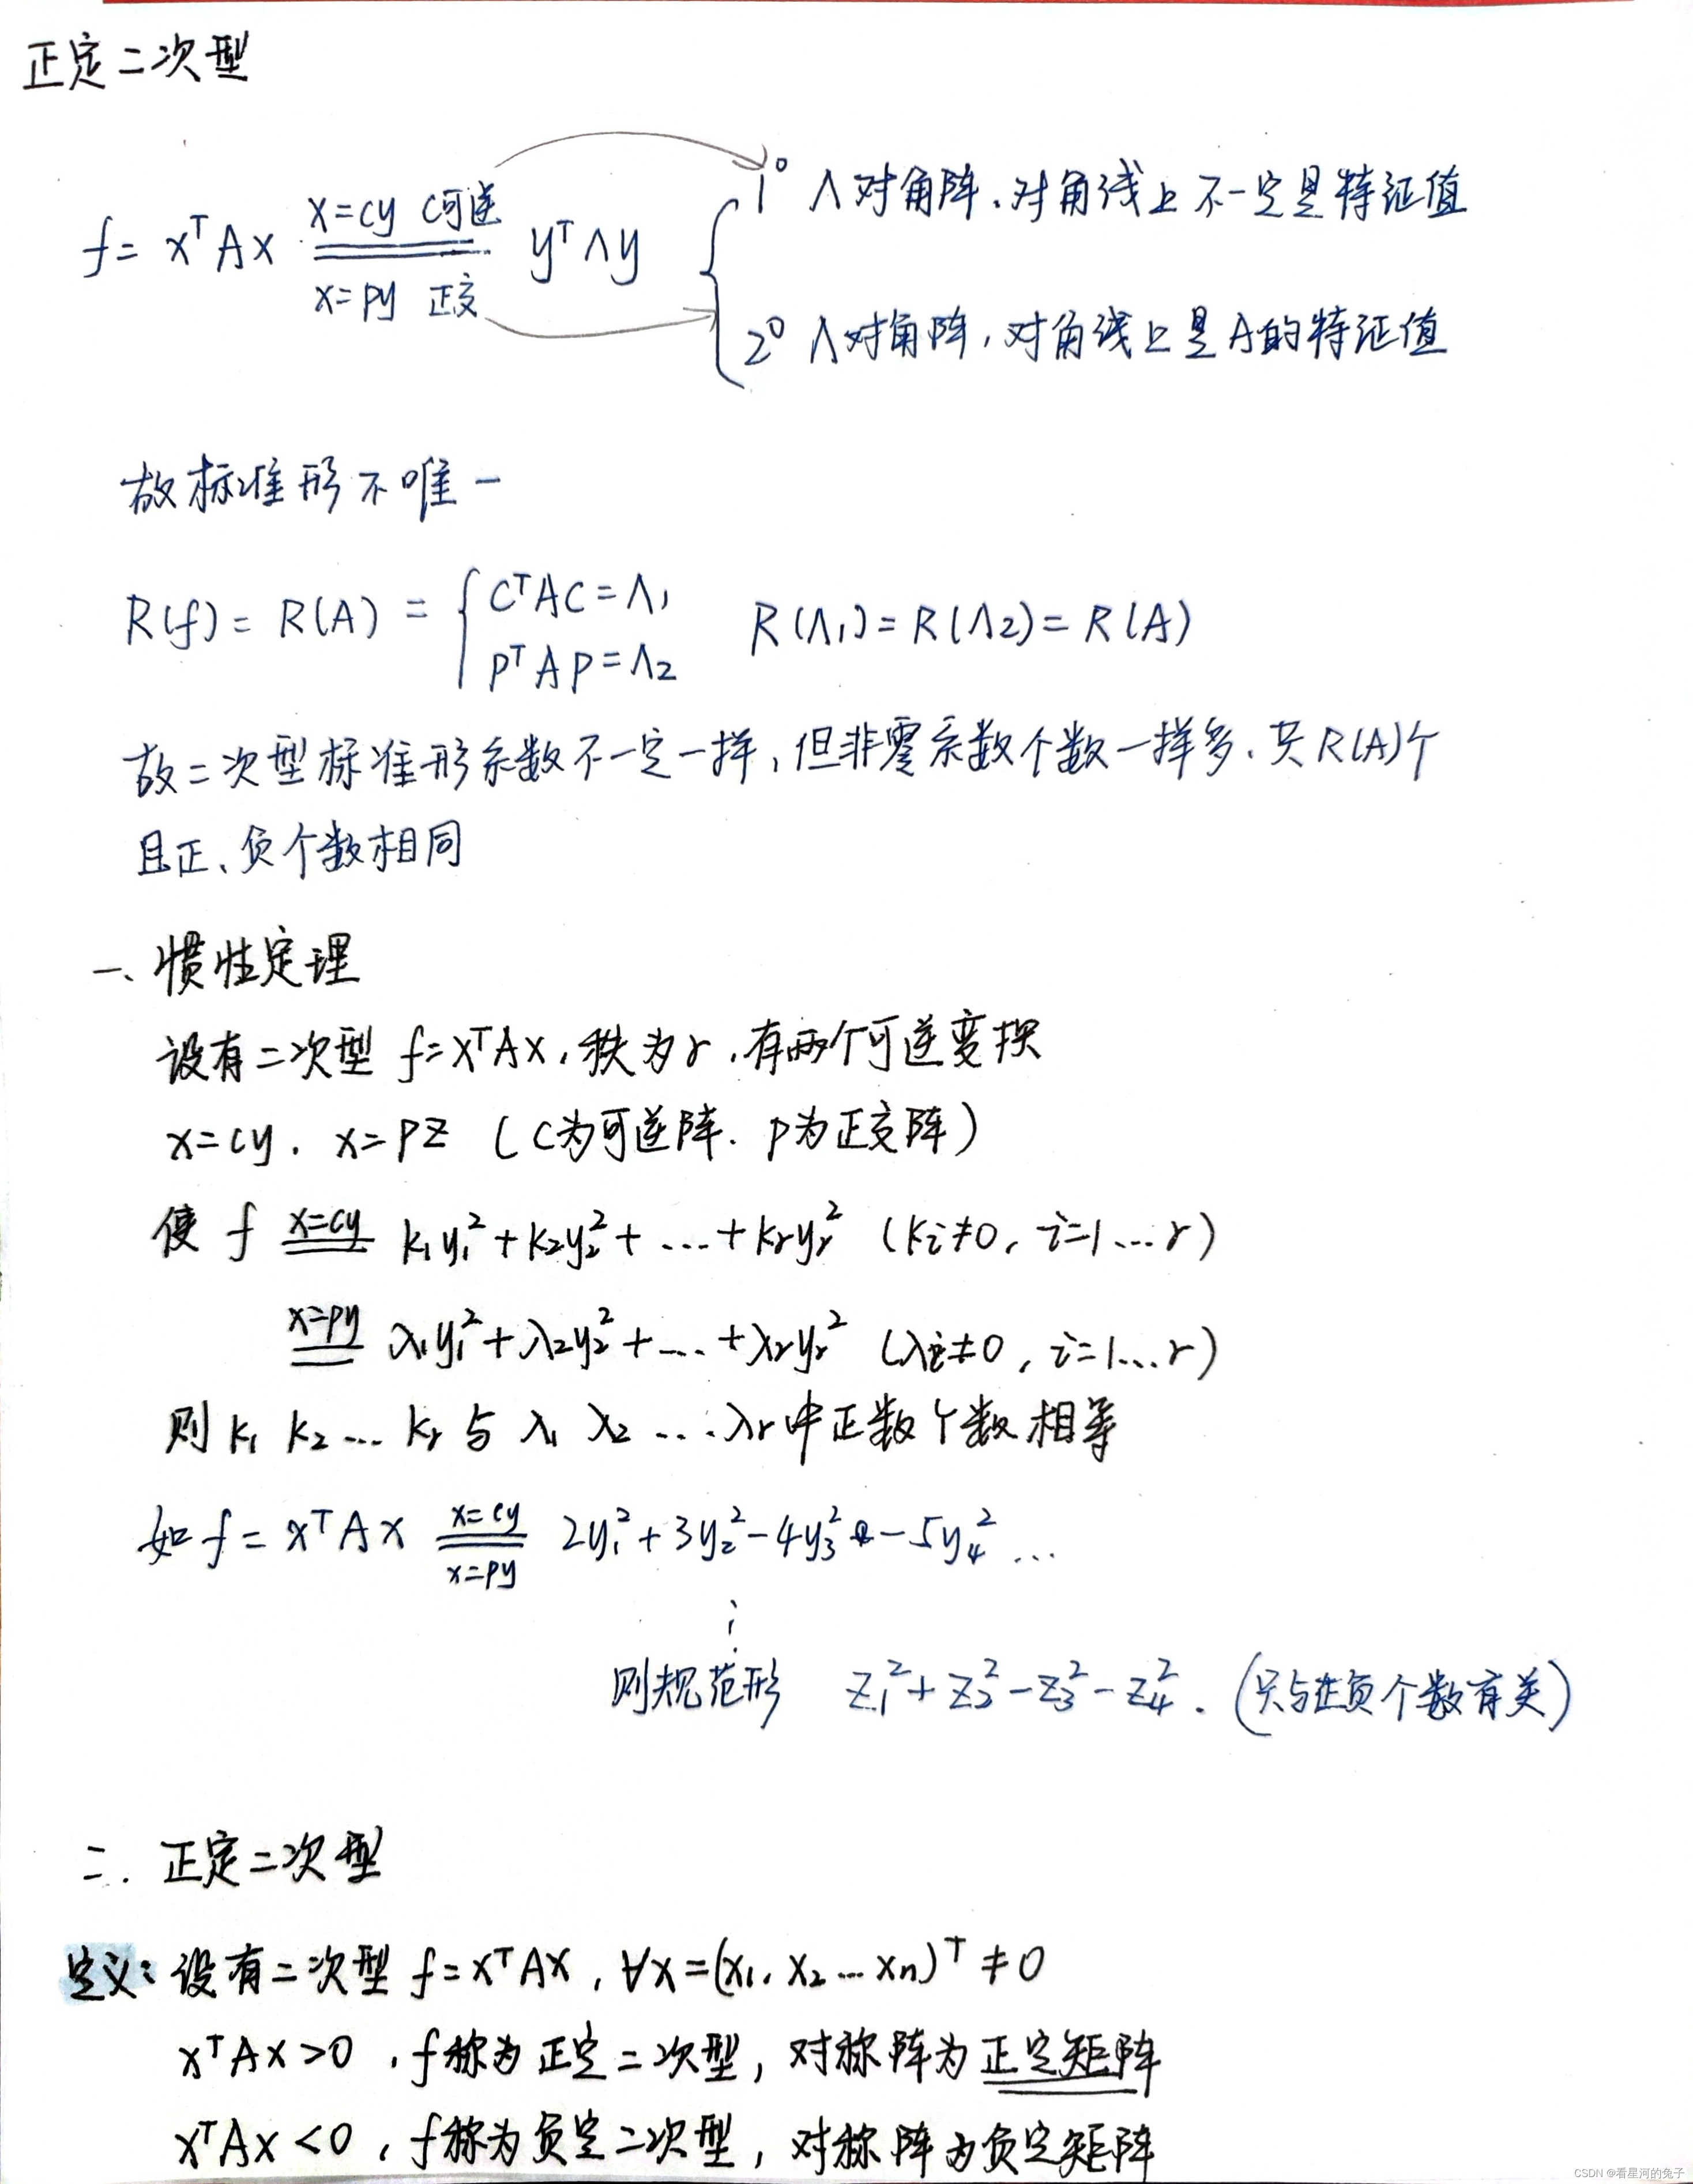 正定二次型
f = xᵀAx x=cy c可逆 x=py 正交 yᵀΛy
1° Λ对角阵、对角线上不一定是特征值
2° Λ对角阵,对角线上是A的特征值
故标准形不唯一
R(f) = R(A) = { CᵀAC=Λ₁ PᵀAP=Λ₂ R(Λ₁)=R(Λ₂)=R(A)
故二次型标准形系数不一定一样,但非零系数个数一样多.共R(A)个
且正、负个数相同
一、惯性定理
设有二次型 f=xᵀAx,秩为r,有两个可逆变换
x=cy. x=pz (C为可逆阵. P为正交阵)
使 f x=cy k₁y₁²+k₂y₂²+...+kᵣyᵣ² (kᵢ≠0, i=1...r)
x=py λ₁y₁²+λ₂y₂²+...+λᵣyᵣ² (λᵢ≠0, i=1...r)
则 k₁ k₂...kᵣ 与 λ₁ λ₂...λᵣ中正数个数相等
如 f = xᵀAx x=cy x=py 2y₁²+3y₂²-4y₃²-5y₄² ...
⋮
则规范形 z₁²+z₂²-z₃²-z₄². (只与正负个数有关)
二. 正定二次型
定义: 设有二次型 f=xᵀAx, ∀x=(x₁, x₂...xn)ᵀ≠0
xᵀAx>0 ,f称为正定二次型, 对称阵为正定矩阵
xᵀAx<0 ,f称为负定二次型, 对称阵为负定矩阵
CSDN @看星河的兔子